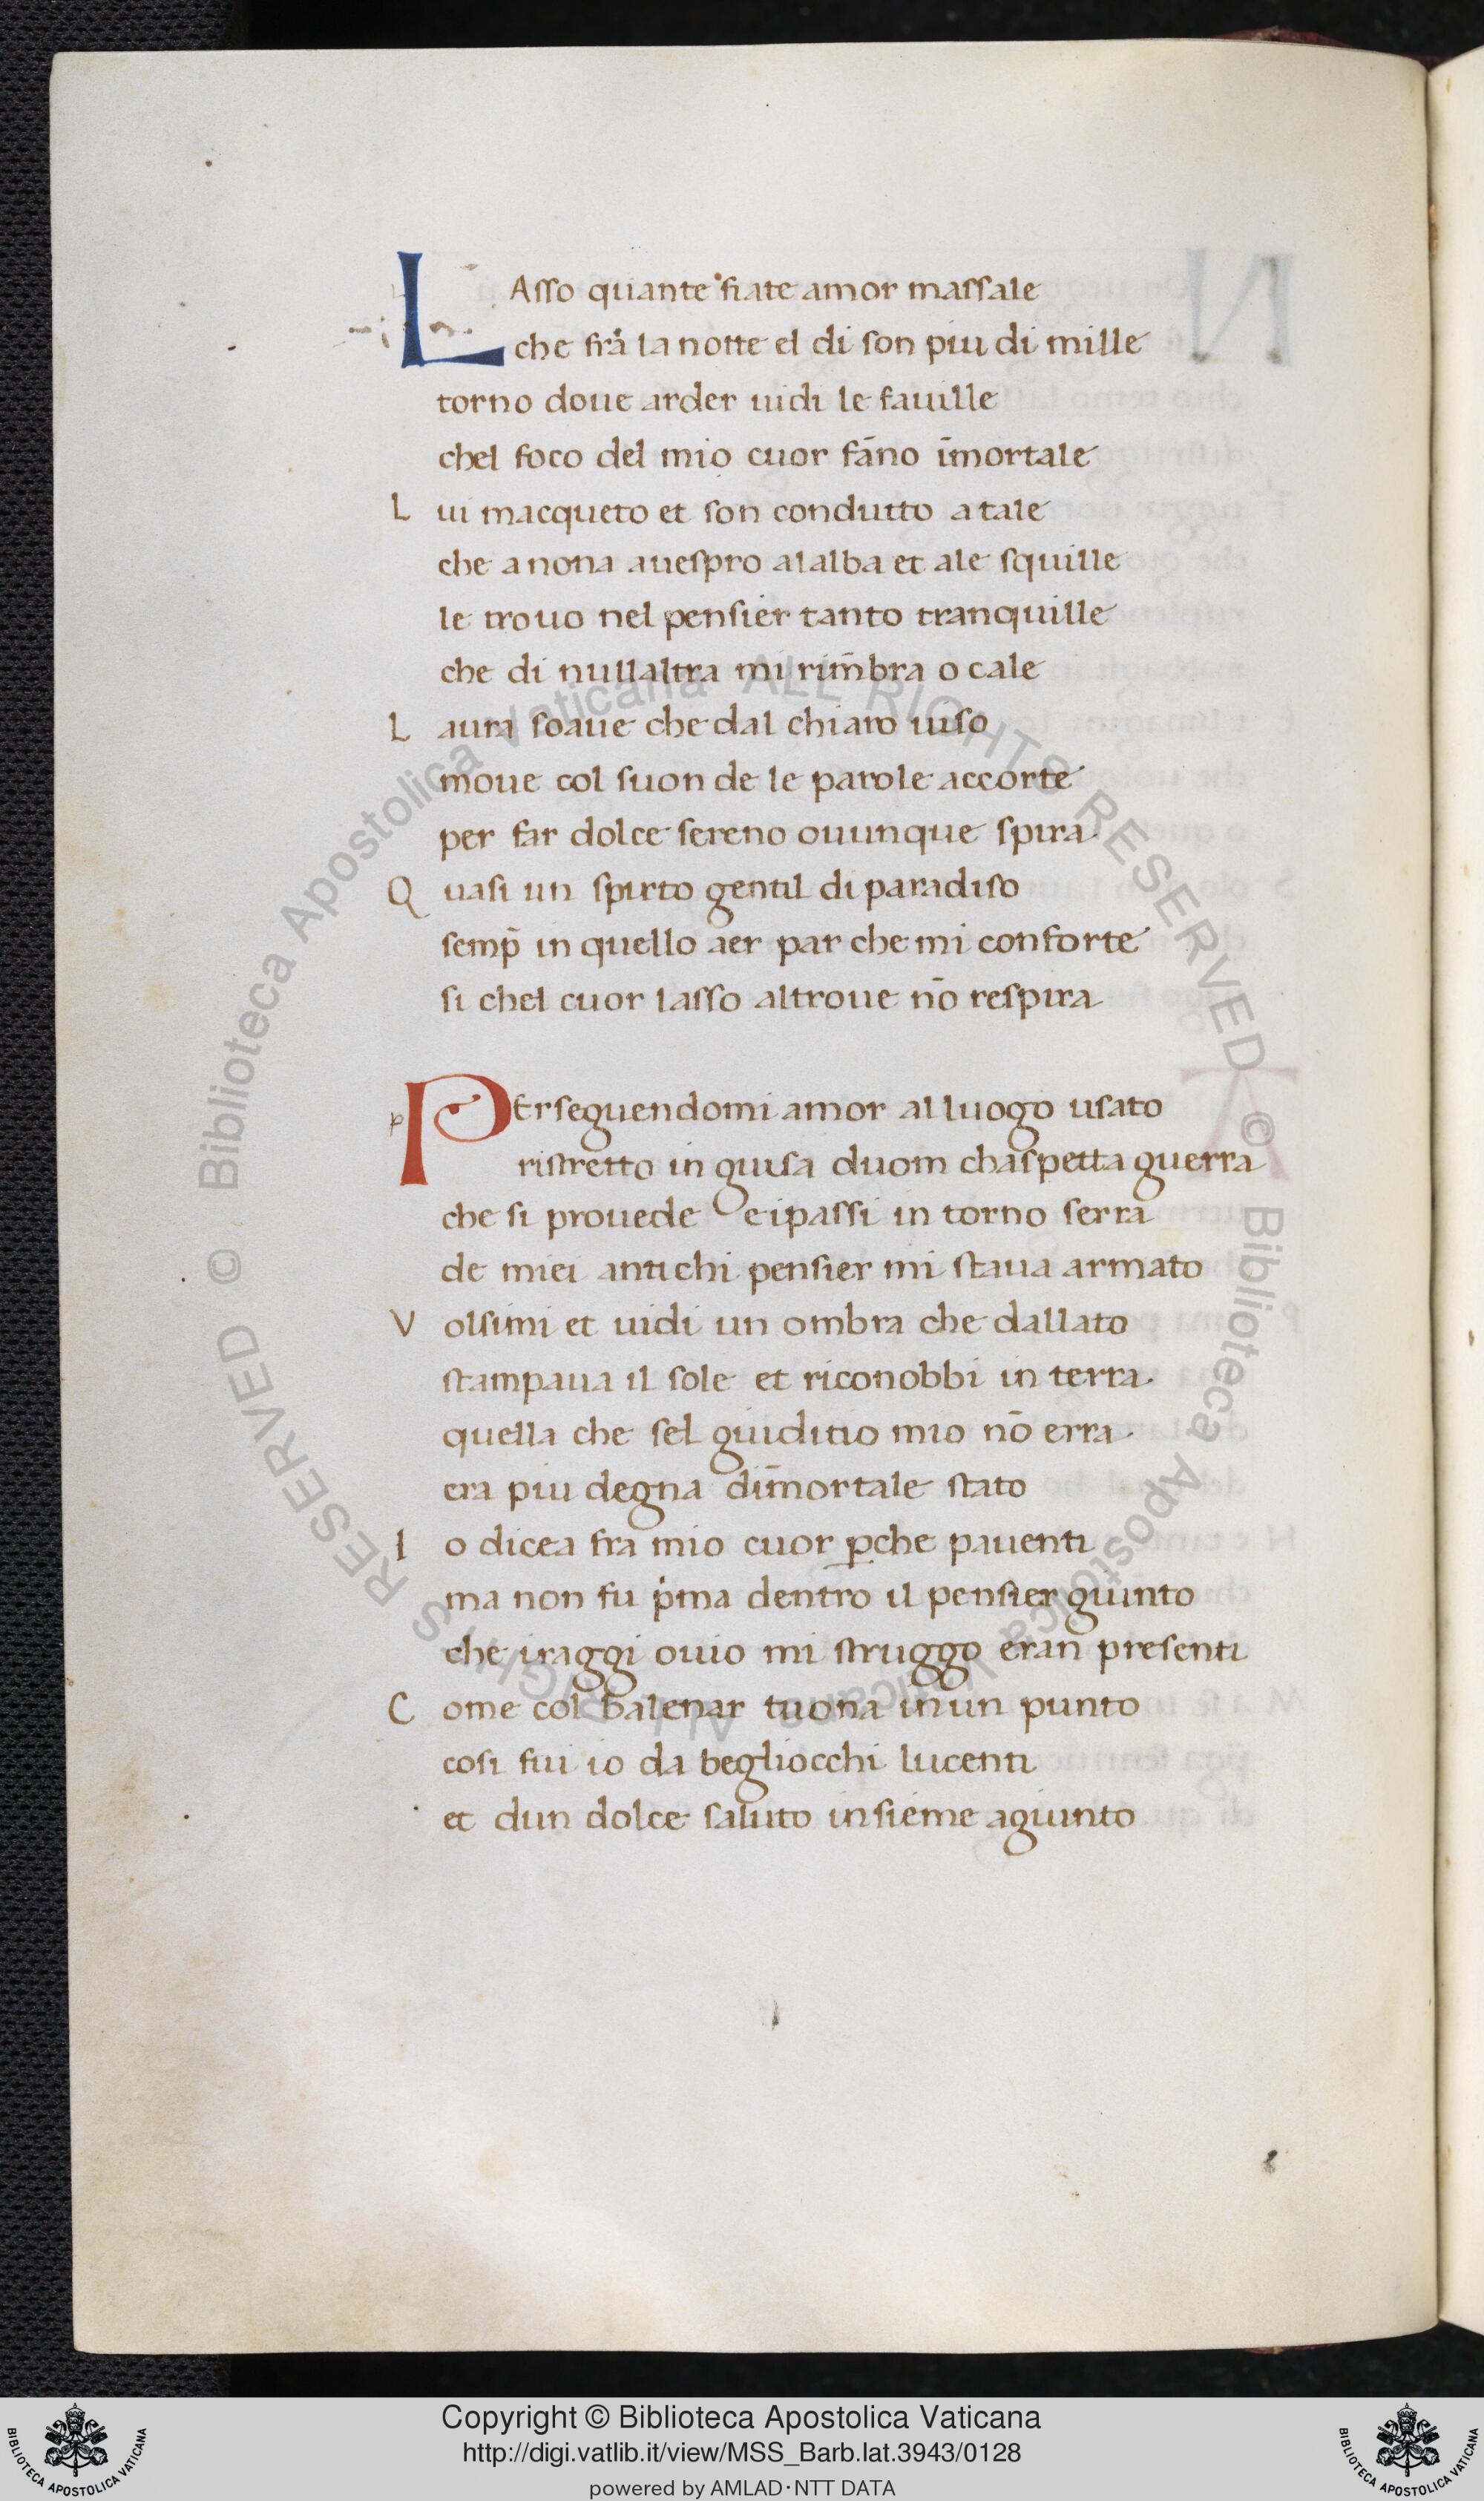 LAsso quante fiate amor massale
che fra la notte el di son piu di mille
torno doue arder uidi le fauille
chel foco del mio cuor fāno īmortale
L ui macqueto et son condutto a tale
che a nona a uespro al alba et ale squille
le trouo nel pensier tanto tranquille
che di nullaltra mi rim̄bra o cale
L aura soaue che dal chiaro uiso
moue col suon de le parole accorte
per far dolce sereno ouunque spira
Q uasi un spirto gentil di paradiso
semp̄ in quello aer par che mi conforte
si chel cuor lasso altroue nō respira
PErseguendomi amor al luogo usato
ristretto in guisa duom chaspetta guerra
che si prouede e i passi in torno serra
de miei antichi pensier mi staua armato
V olsimi et uidi un ombra che dallato
stampaua il sole et riconobbi in terra
quella che sel giuditio mio nō erra
era piu degna dim̄ortale stato
I o dicea fra mio cuor ꝑche pauenti
ma non fu p̍ma dentro il pensier giunto
che i raggi ouio mi struggo eran presenti
C ome col balenar tuona in un punto
cosi fui io da begliocchi lucenti
et dun dolce saluto insieme agiunto
Copyright © Biblioteca Apostolica Vaticana
http://digi.vatlib.it/view/MSS_Barb.lat.3943/0128
powered by AMLAD·NTT DATA